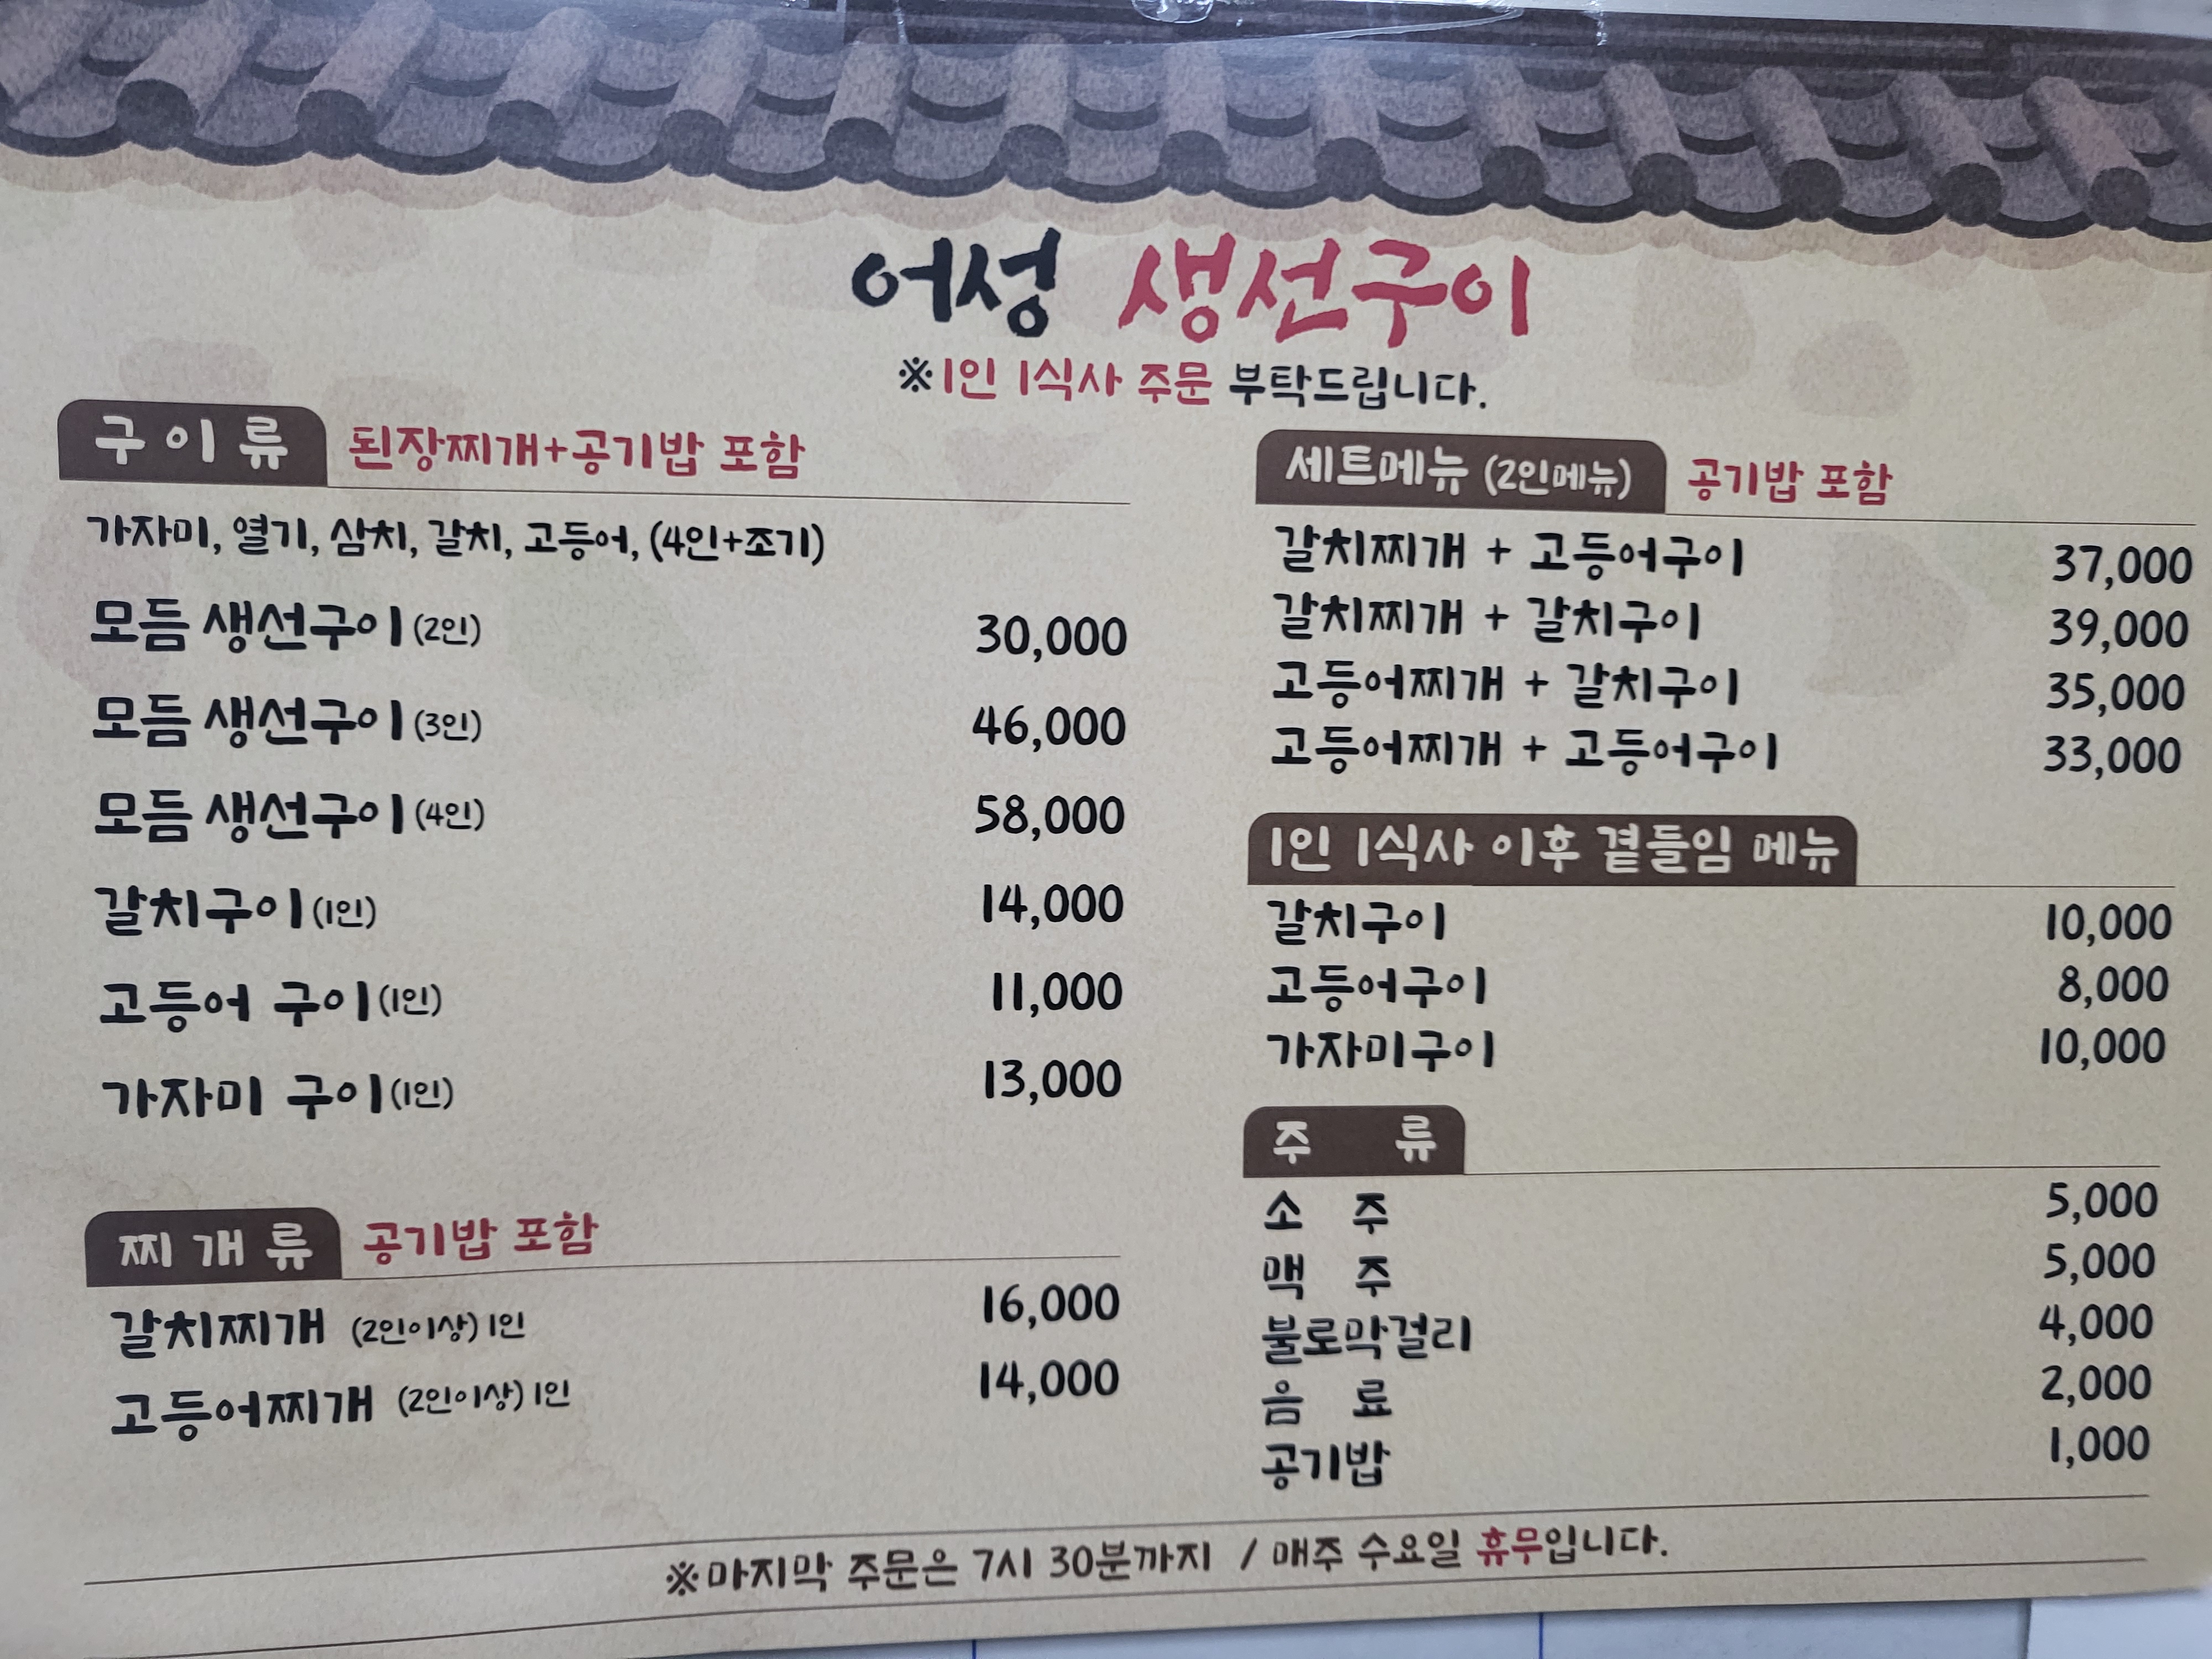 어성 생선구이
※1인 1식사 주문 부탁드립니다.
구이류 된장찌개+공기밥 포함
가자미, 열기, 삼치, 갈치, 고등어, (4인+조기)
모듬 생선구이(2인) 30,000
모듬 생선구이(3인) 46,000
모듬 생선구이(4인) 58,000
갈치구이(1인) 14,000
고등어 구이(1인) 11,000
가자미 구이(1인) 13,000
찌개류 공기밥 포함
갈치찌개 (2인이상)1인 16,000
고등어찌개 (2인이상)1인 14,000
세트메뉴 (2인메뉴) 공기밥 포함
갈치찌개 + 고등어구이 37,000
갈치찌개 + 갈치구이 39,000
고등어찌개 + 갈치구이 35,000
고등어찌개 + 고등어구이 33,000
1인 1식사 이후 곁들임 메뉴
갈치구이 10,000
고등어구이 8,000
가자미구이 10,000
주 류
소 주 5,000
맥 주 5,000
불로막걸리 4,000
음 료 2,000
공기밥 1,000
※마지막 주문은 7시 30분까지 / 매주 수요일 휴무입니다.